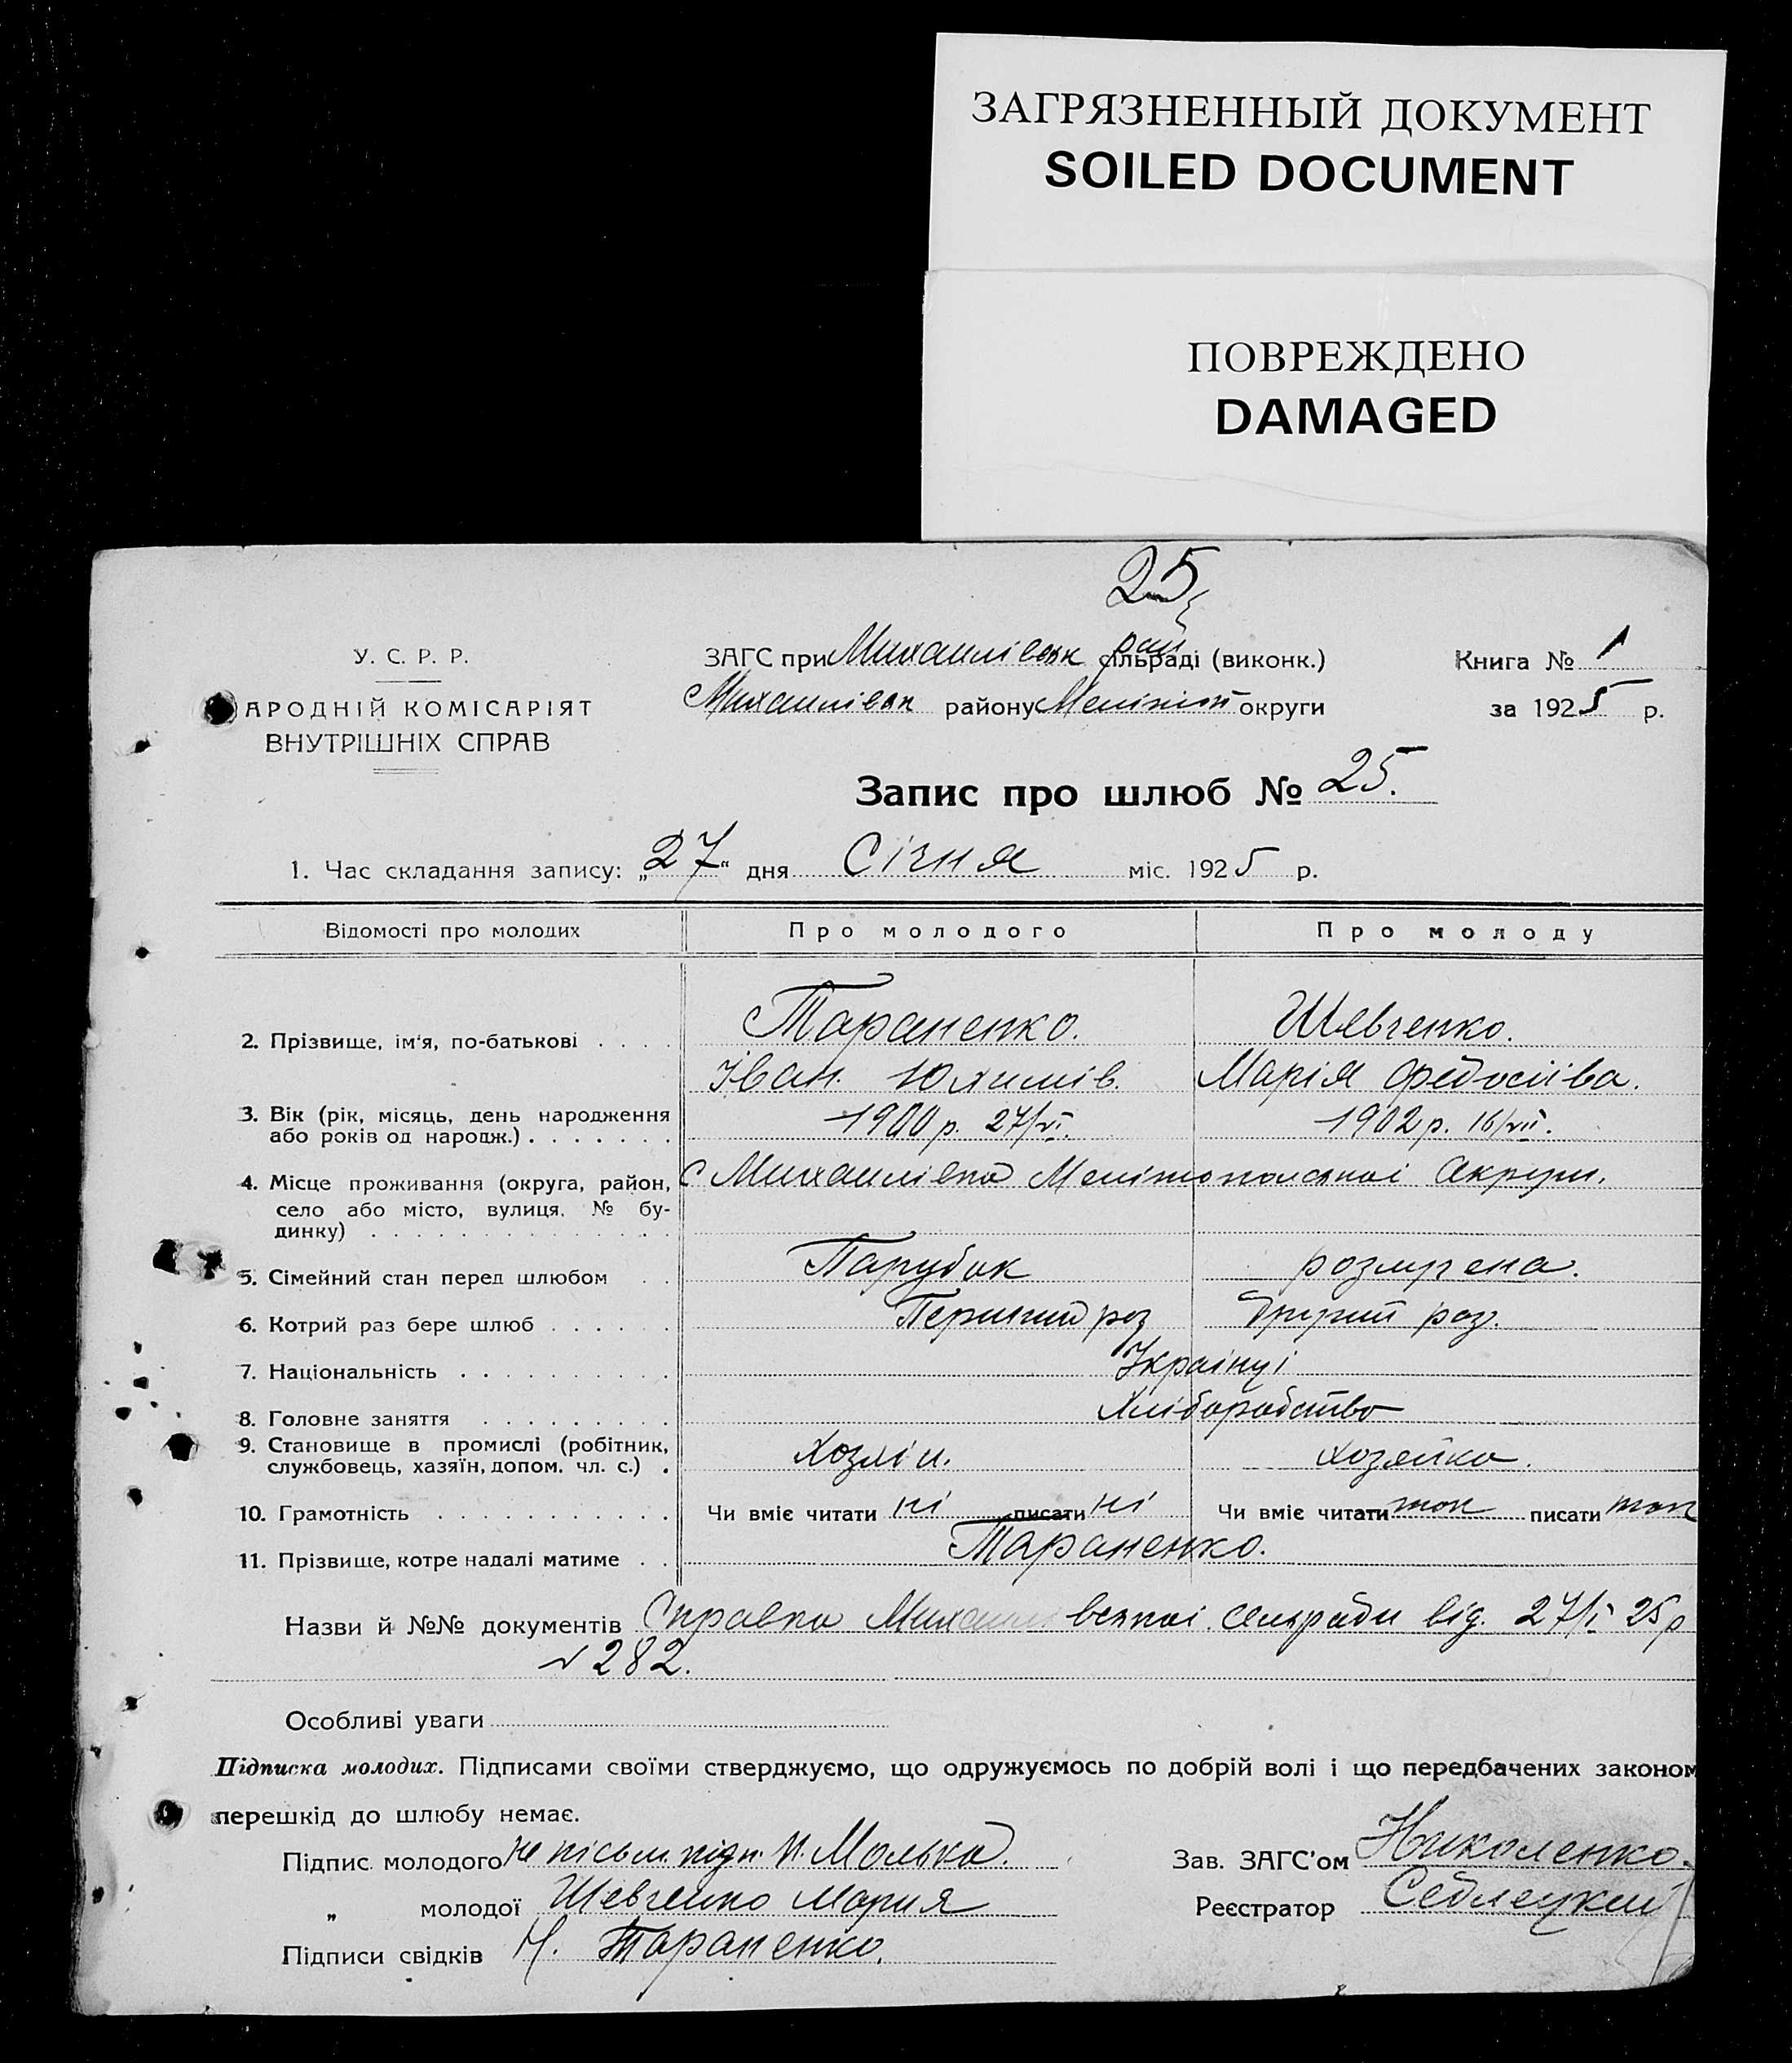 ЗАГРЯЗНЕННЫЙ ДОКУМЕНТ
SOILED DOCUMENT
ПОВРЕЖДЕНО
DAMAGED
25
У. С. Р. Р.
АРОДНІЙ КОМІСАРІЯТ
ВНУТРІШНІХ СПРАВ
ЗАГС при Михаилівськ рай сільраді (виконк.)
Михаилівськ району Меліт округи
Книга № 1
за 1925 р.
Запис про шлюб № 25.
1. Час складання запису: „27“ дня Січня міс. 1925 р.
Відомості про молодих Про молодого Про молоду
2. Прізвище, ім'я, по-батькові . . . . Тараненко. Шевченко.
Іван. Юхимів. Марія Федосіїва.
3. Вік (рік, місяць, день народження або років од народж.) . . . . . . . 1900 р. 27/VI. 1902 р. 16/VII.
4. Місце проживання (округа, район, село або місто, вулиця, № будинку) . . . с Михаилівка Мелітопольської Округи.
5. Сімейний стан перед шлюбом . . Парубок розлучена.
6. Котрий раз бере шлюб . . . . . . Перший раз Другий раз.
7. Національність . . . . . . . . . . Українці
8. Головне заняття . . . . . . . . . Хліборобство
9. Становище в промислі (робітник, службовець, хазяїн, допом. чл. с.) . Хозяїн. Хозяйка.
10. Грамотність . . . . . . . . . . . Чи вміє читати ні писати ні Чи вміє читати так писати так
11. Прізвище, котре надалі матиме . . Тараненко.
Назви й №№ документів Справка Михаилівської сельради від. 27/I 25 р
№ 282.
Особливі уваги
Підписка молодих. Підписами своїми стверджуємо, що одружуємось по добрій волі і що передбачених законом
перешкід до шлюбу немає.
Підпис молодого не пісьм. підп. Зав. ЗАГС'ом Николенко.
„ молодої Шевченко Мария Реєстратор Седлецкий
Підписи свідків Н. Тараненко.